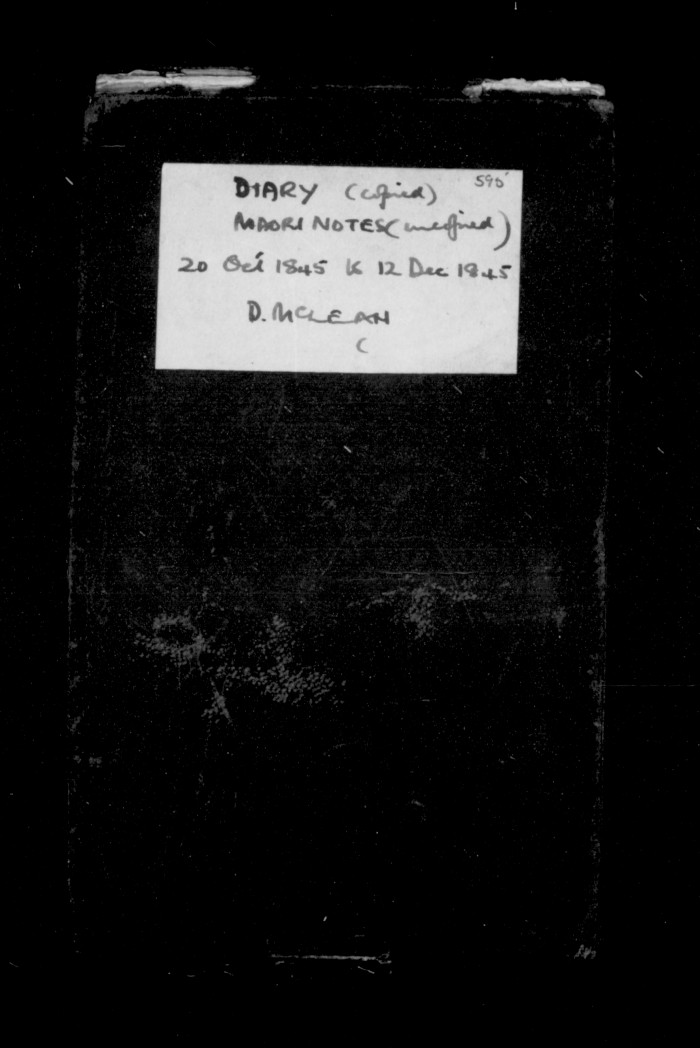 595
DIARY (copied)
MAORI NOTES (uncopied)
20 Oct 1845 to 12 Dec 1845
D. MCLEAN